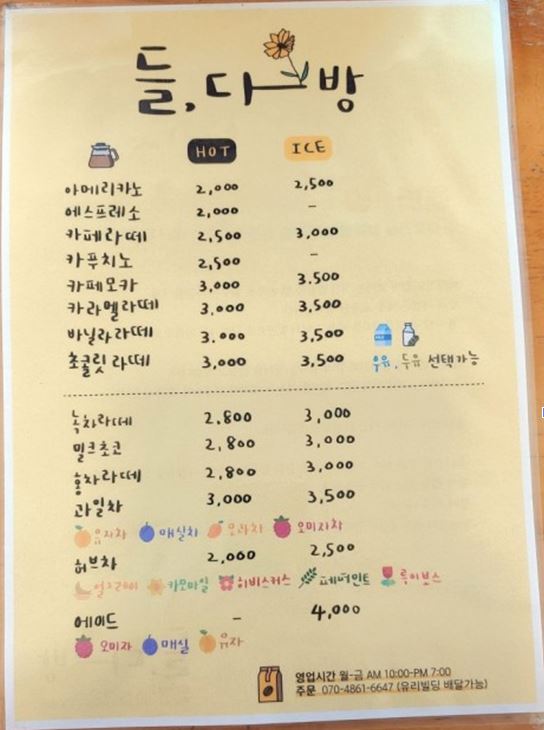 들, 다방
HOT ICE
아메리카노 2,000 2,500
에스프레소 2,000 -
카페라떼 2,500 3,000
카푸치노 2,500 -
카페모카 3,000 3.500
카라멜라떼 3.000 3,500
바닐라라떼 3.000 3,500
초콜릿 라떼 3,000 3,500
우유, 두유 선택가능
녹차라떼 2.800 3,000
밀크초코 2,800 3,000
홍차라떼 2,800 3,000
과일차 3,000 3,500
유자차 매실차 모과차 오미자차
허브차 2,000 2,500
얼그레이 카모마일 히비스커스 페퍼민트 루이보스
에이드 - 4,000
오미자 매실 유자
영업시간 월-금 AM 10:00-PM 7:00
주문 070-4861-6647 (유리빌딩 배달가능)